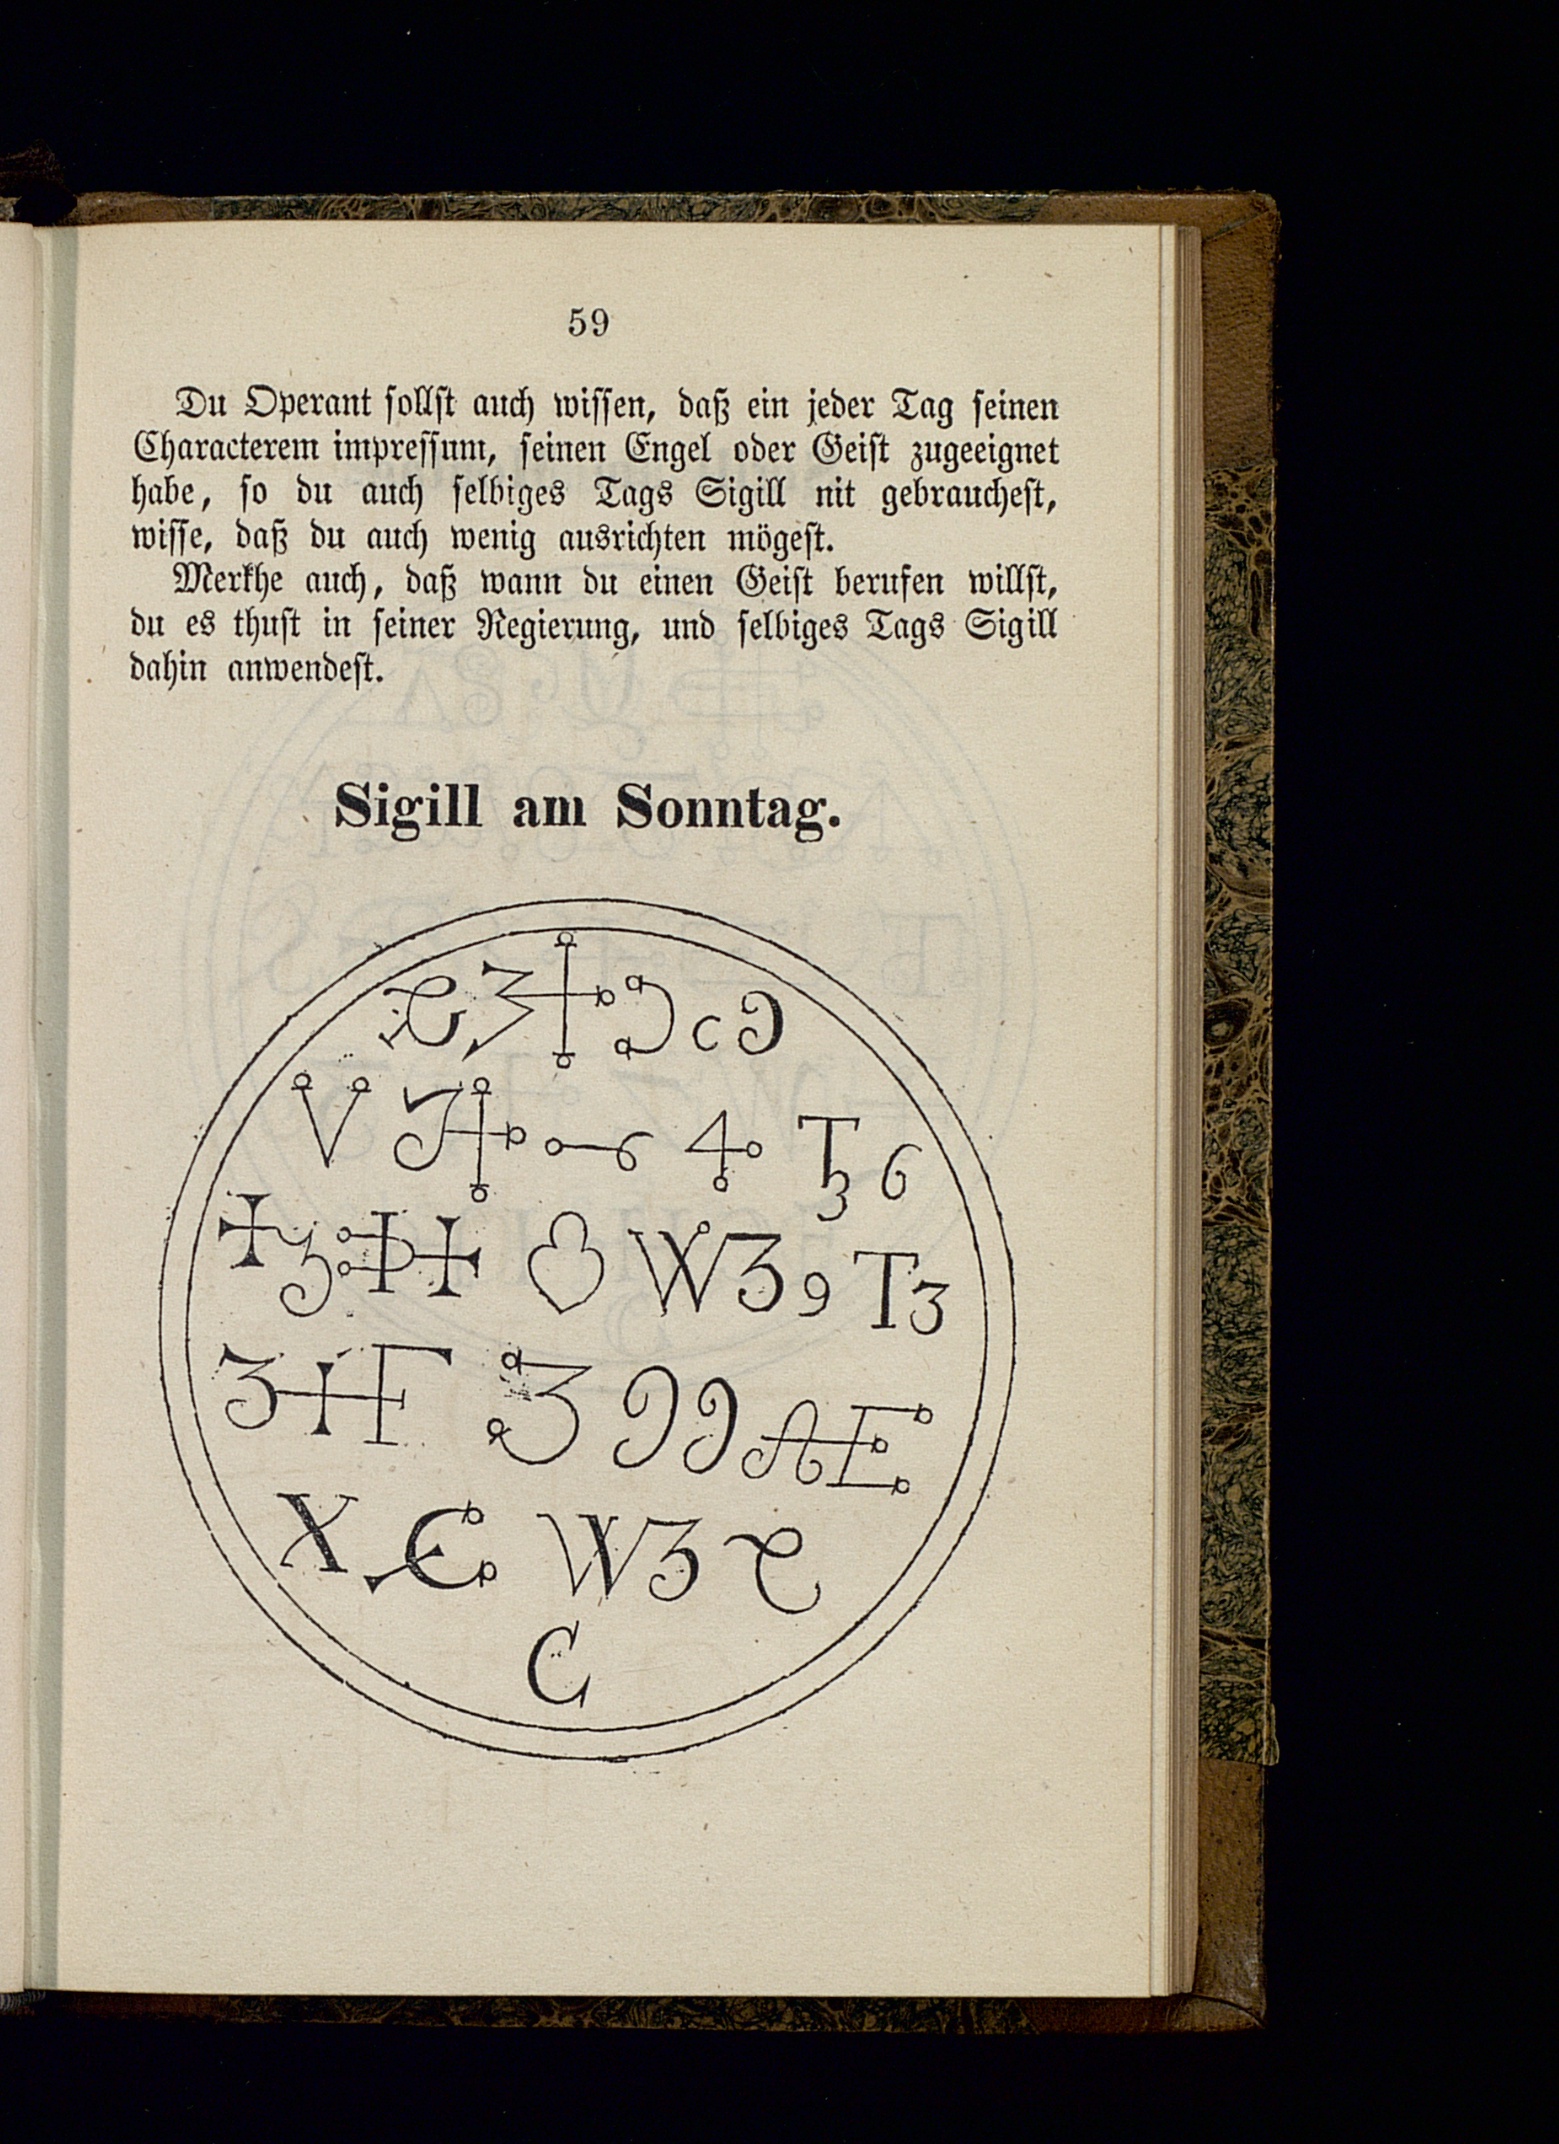 59
Du Operant sollst auch wissen, daß ein jeder Tag seinen
Characterem impressum, seinen Engel oder Geist zugeeignet
habe, so du auch selbiges Tags Sigill nit gebrauchest,
wisse, daß du auch wenig ausrichten mögest.
Merkhe auch, daß wann du einen Geist berufen willst,
du es thust in seiner Regierung, und selbiges Tags Sigill
dahin anwendest.
Sigill am Sonntag.